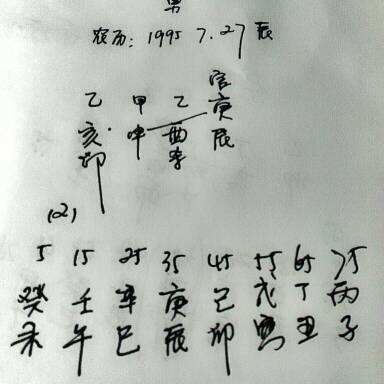 男
农历: 1995 7.27 辰
官
乙 甲 乙 庚
亥 申 酉 辰
卯 辛
(2)
5 15 25 35 45 55 65 75
癸 壬 辛 庚 己 戊 丁 丙
未 午 巳 辰 卯 寅 丑 子